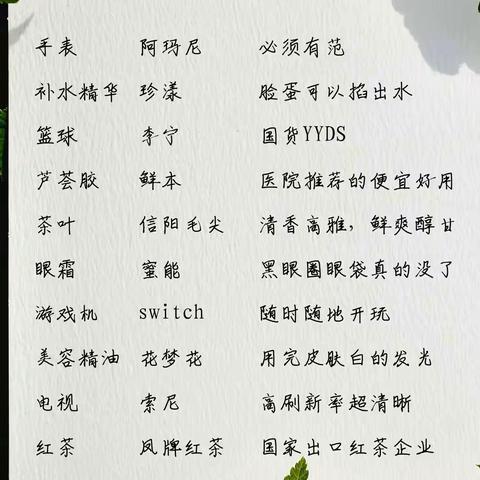 手表 阿玛尼 必须有范
补水精华 珍漾 脸蛋可以掐出水
篮球 李宁 国货YYDS
芦荟胶 鲜本 医院推荐的便宜好用
茶叶 信阳毛尖 清香高雅，鲜爽醇甘
眼霜 蜜能 黑眼圈眼袋真的没了
游戏机 switch 随时随地开玩
美容精油 花梦花 用完皮肤白的发光
电视 索尼 高刷新率超清晰
红茶 凤牌红茶 国家出口红茶企业